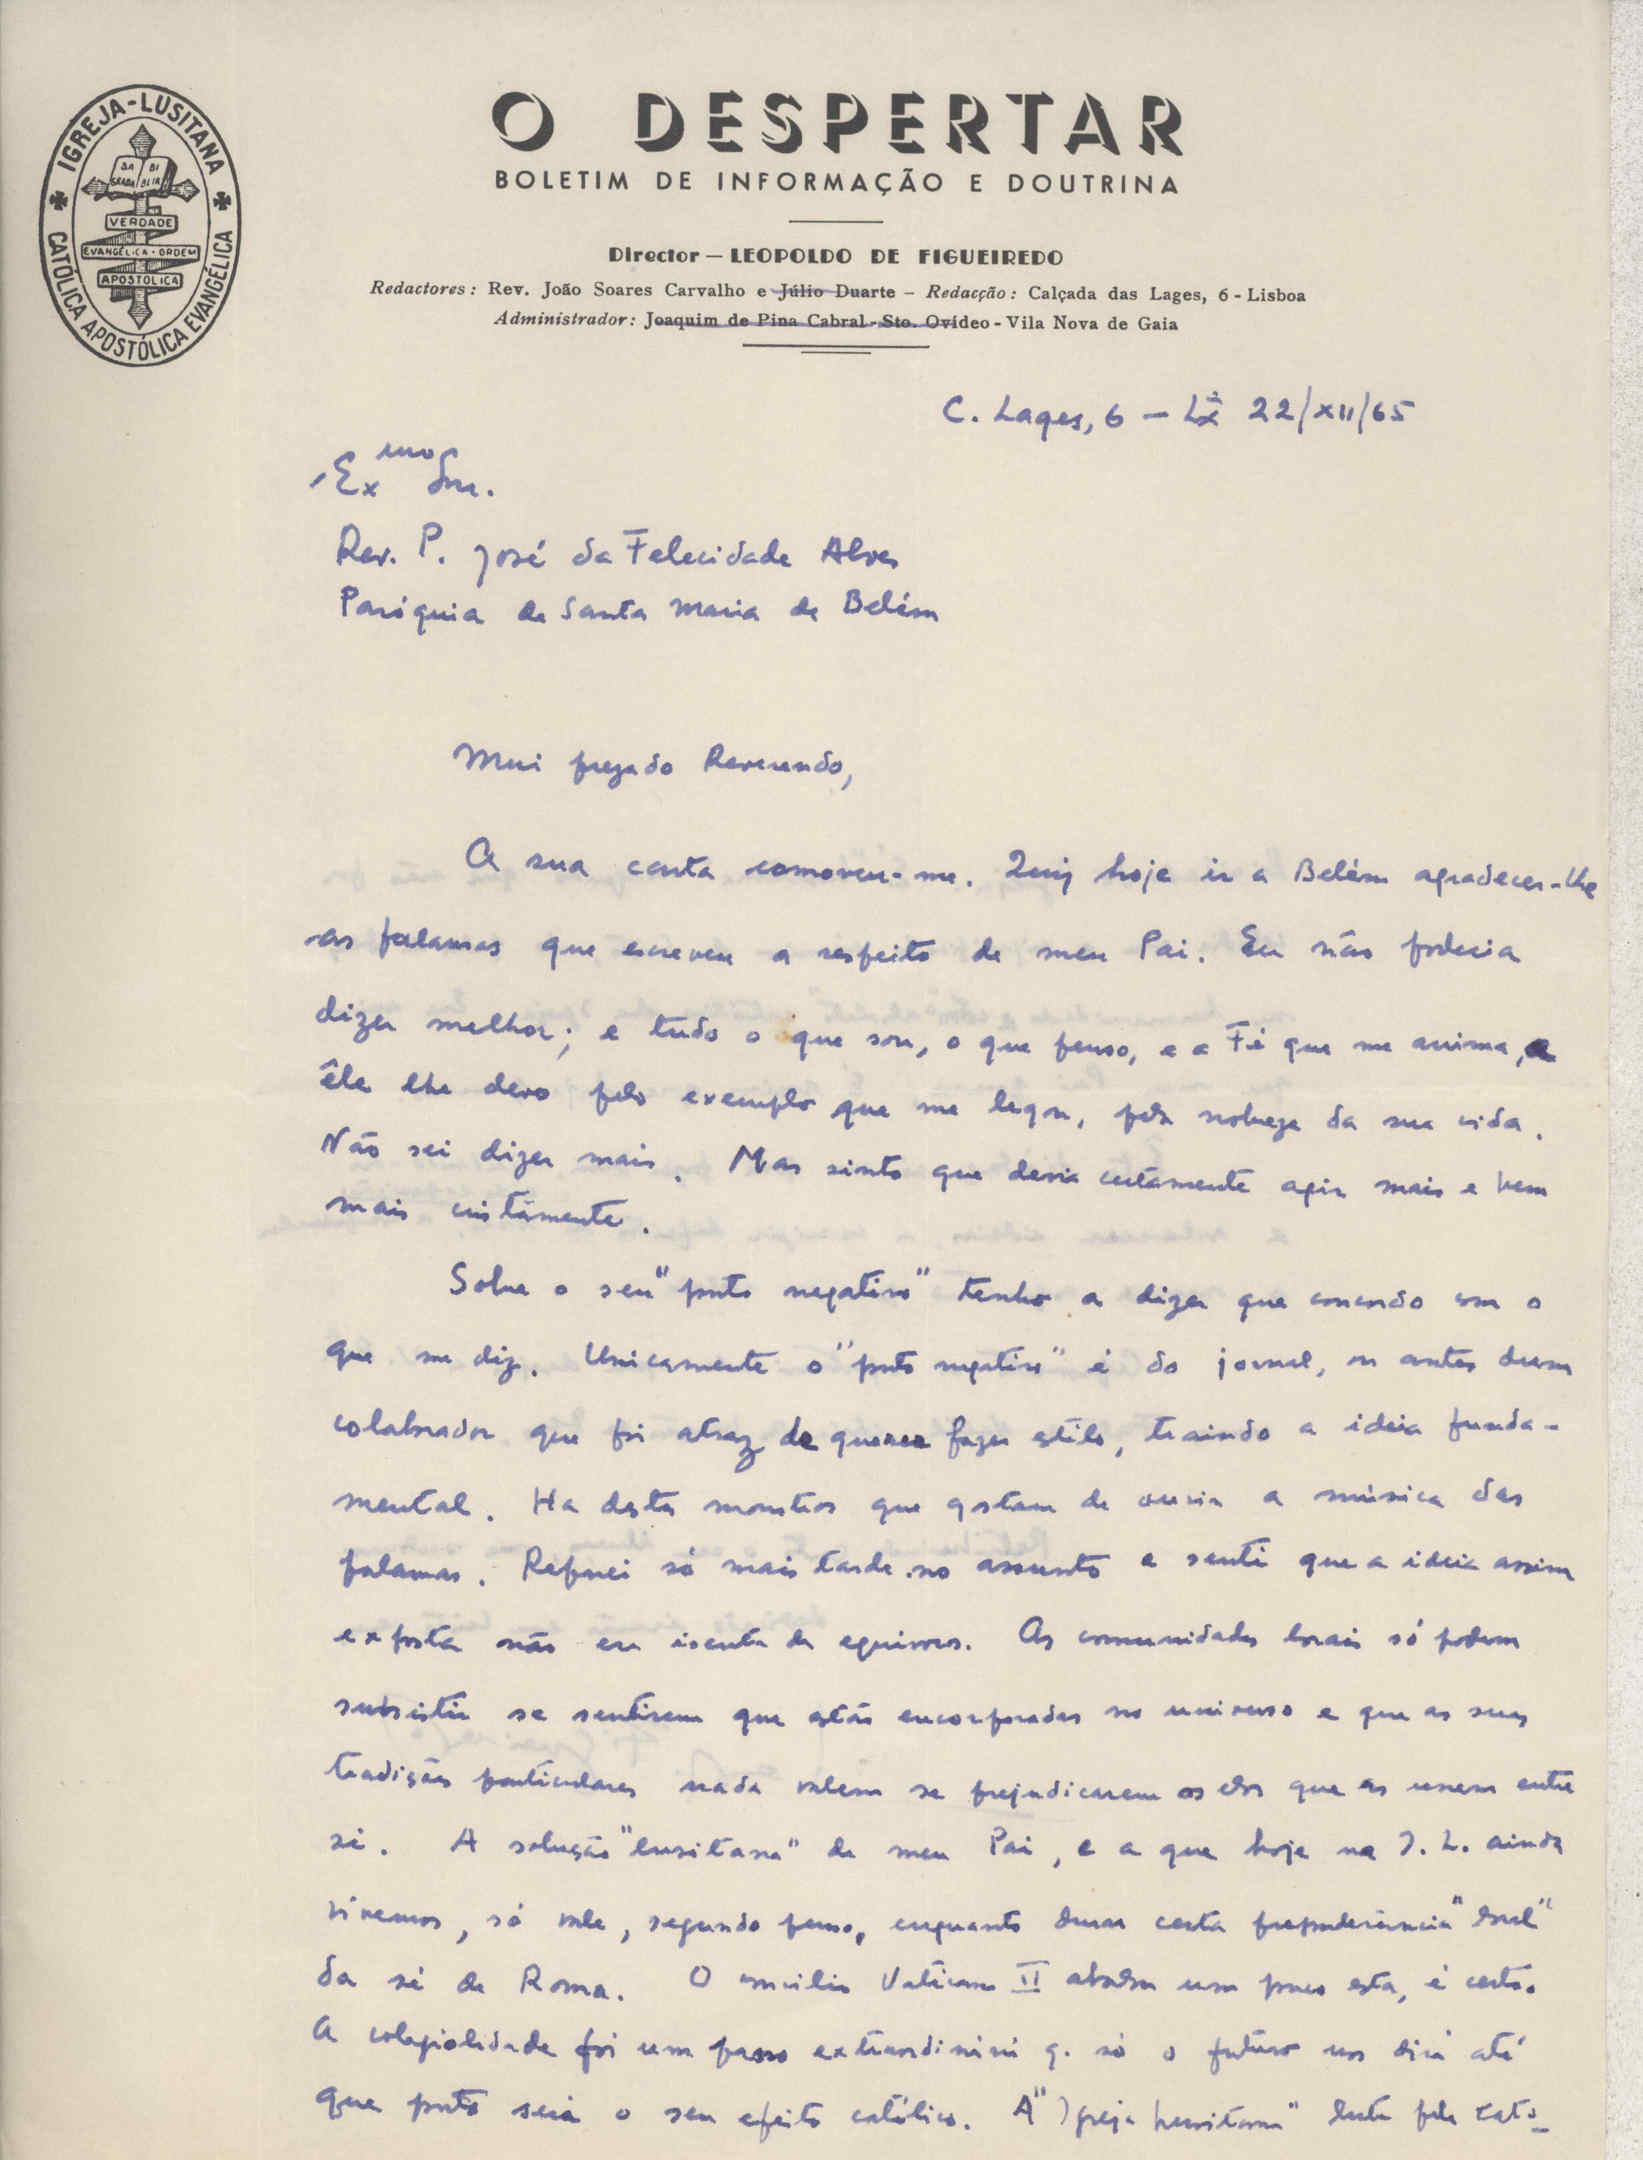 IGREJA-LUSITANA
CATÓLICA APOSTÓLICA EVANGÉLICA
SAGRADA BIBLIA
VERDADE
EVANGÉLICA·ORDEM
APOSTÓLICA
O DESPERTAR
BOLETIM DE INFORMAÇÃO E DOUTRINA
Director — LEOPOLDO DE FIGUEIREDO
Redactores: Rev. João Soares Carvalho e Júlio Duarte — Redacção: Calçada das Lages, 6 - Lisboa
Administrador: Joaquim de Pina Cabral - Sto. Ovídeo - Vila Nova de Gaia
C. Lages, 6 — Lx 22/XII/65
Exmo Snr.
Rev. P. José da Felecidade Alves
Paróquia de Santa Maria de Belém
Mui prezado Reverendo,
A sua carta comoveu-me. Quiz hoje ir a Belém agradecer-lhe
as palavras que escreveu a respeito de meu Pai. Eu não poderia
dizer melhor; e tudo o que sou, o que penso, e a Fé que me anima, a
êle lhe devo pelo exemplo que me legou, pela nobreza da sua vida.
Não sei dizer mais. Mas sinto que devia certamente agir mais e bem
mais cristãmente.
Sobre o seu "ponto negativo" tenho a dizer que concordo com o
que me diz. Unicamente o "ponto negativo" é do jornal, ou antes dum
colaborador que foi atraz de querer fazer estilo, traindo a ideia funda-
mental. Ha destes monstros que gostam de ouvir a música das
palavras. Reparei só mais tarde no assunto e senti que a ideia assim
exposta não era isenta de equivocos. As comunidades locais só podem
subsistir se sentirem que estão encorporadas no universo e que as suas
tradições particulares nada valem se prejudicarem os elos que as unem entre
si. A solução "lusitana" de meu Pai, e a que hoje na I. L. ainda
vivemos, só vale, segundo penso, enquanto durar certa preponderância "local"
da sé de Roma. O concilio Vaticano II abalou um pouco esta, é certo.
A colegialidade foi um passo extraordinário q. só o futuro nos dirá até
que ponto será o seu efeito católico. A "Igreja Lusitana" luta pela cato-